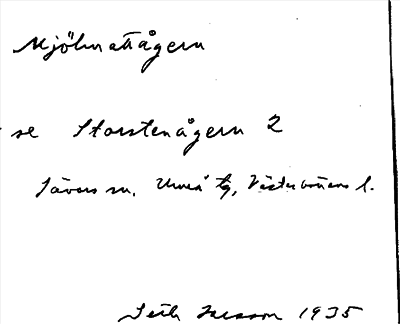 Mjölnatågern
se Storstenågern 2
Sävars sn. Umeå tg, Västerbottens l.
Seth 1935